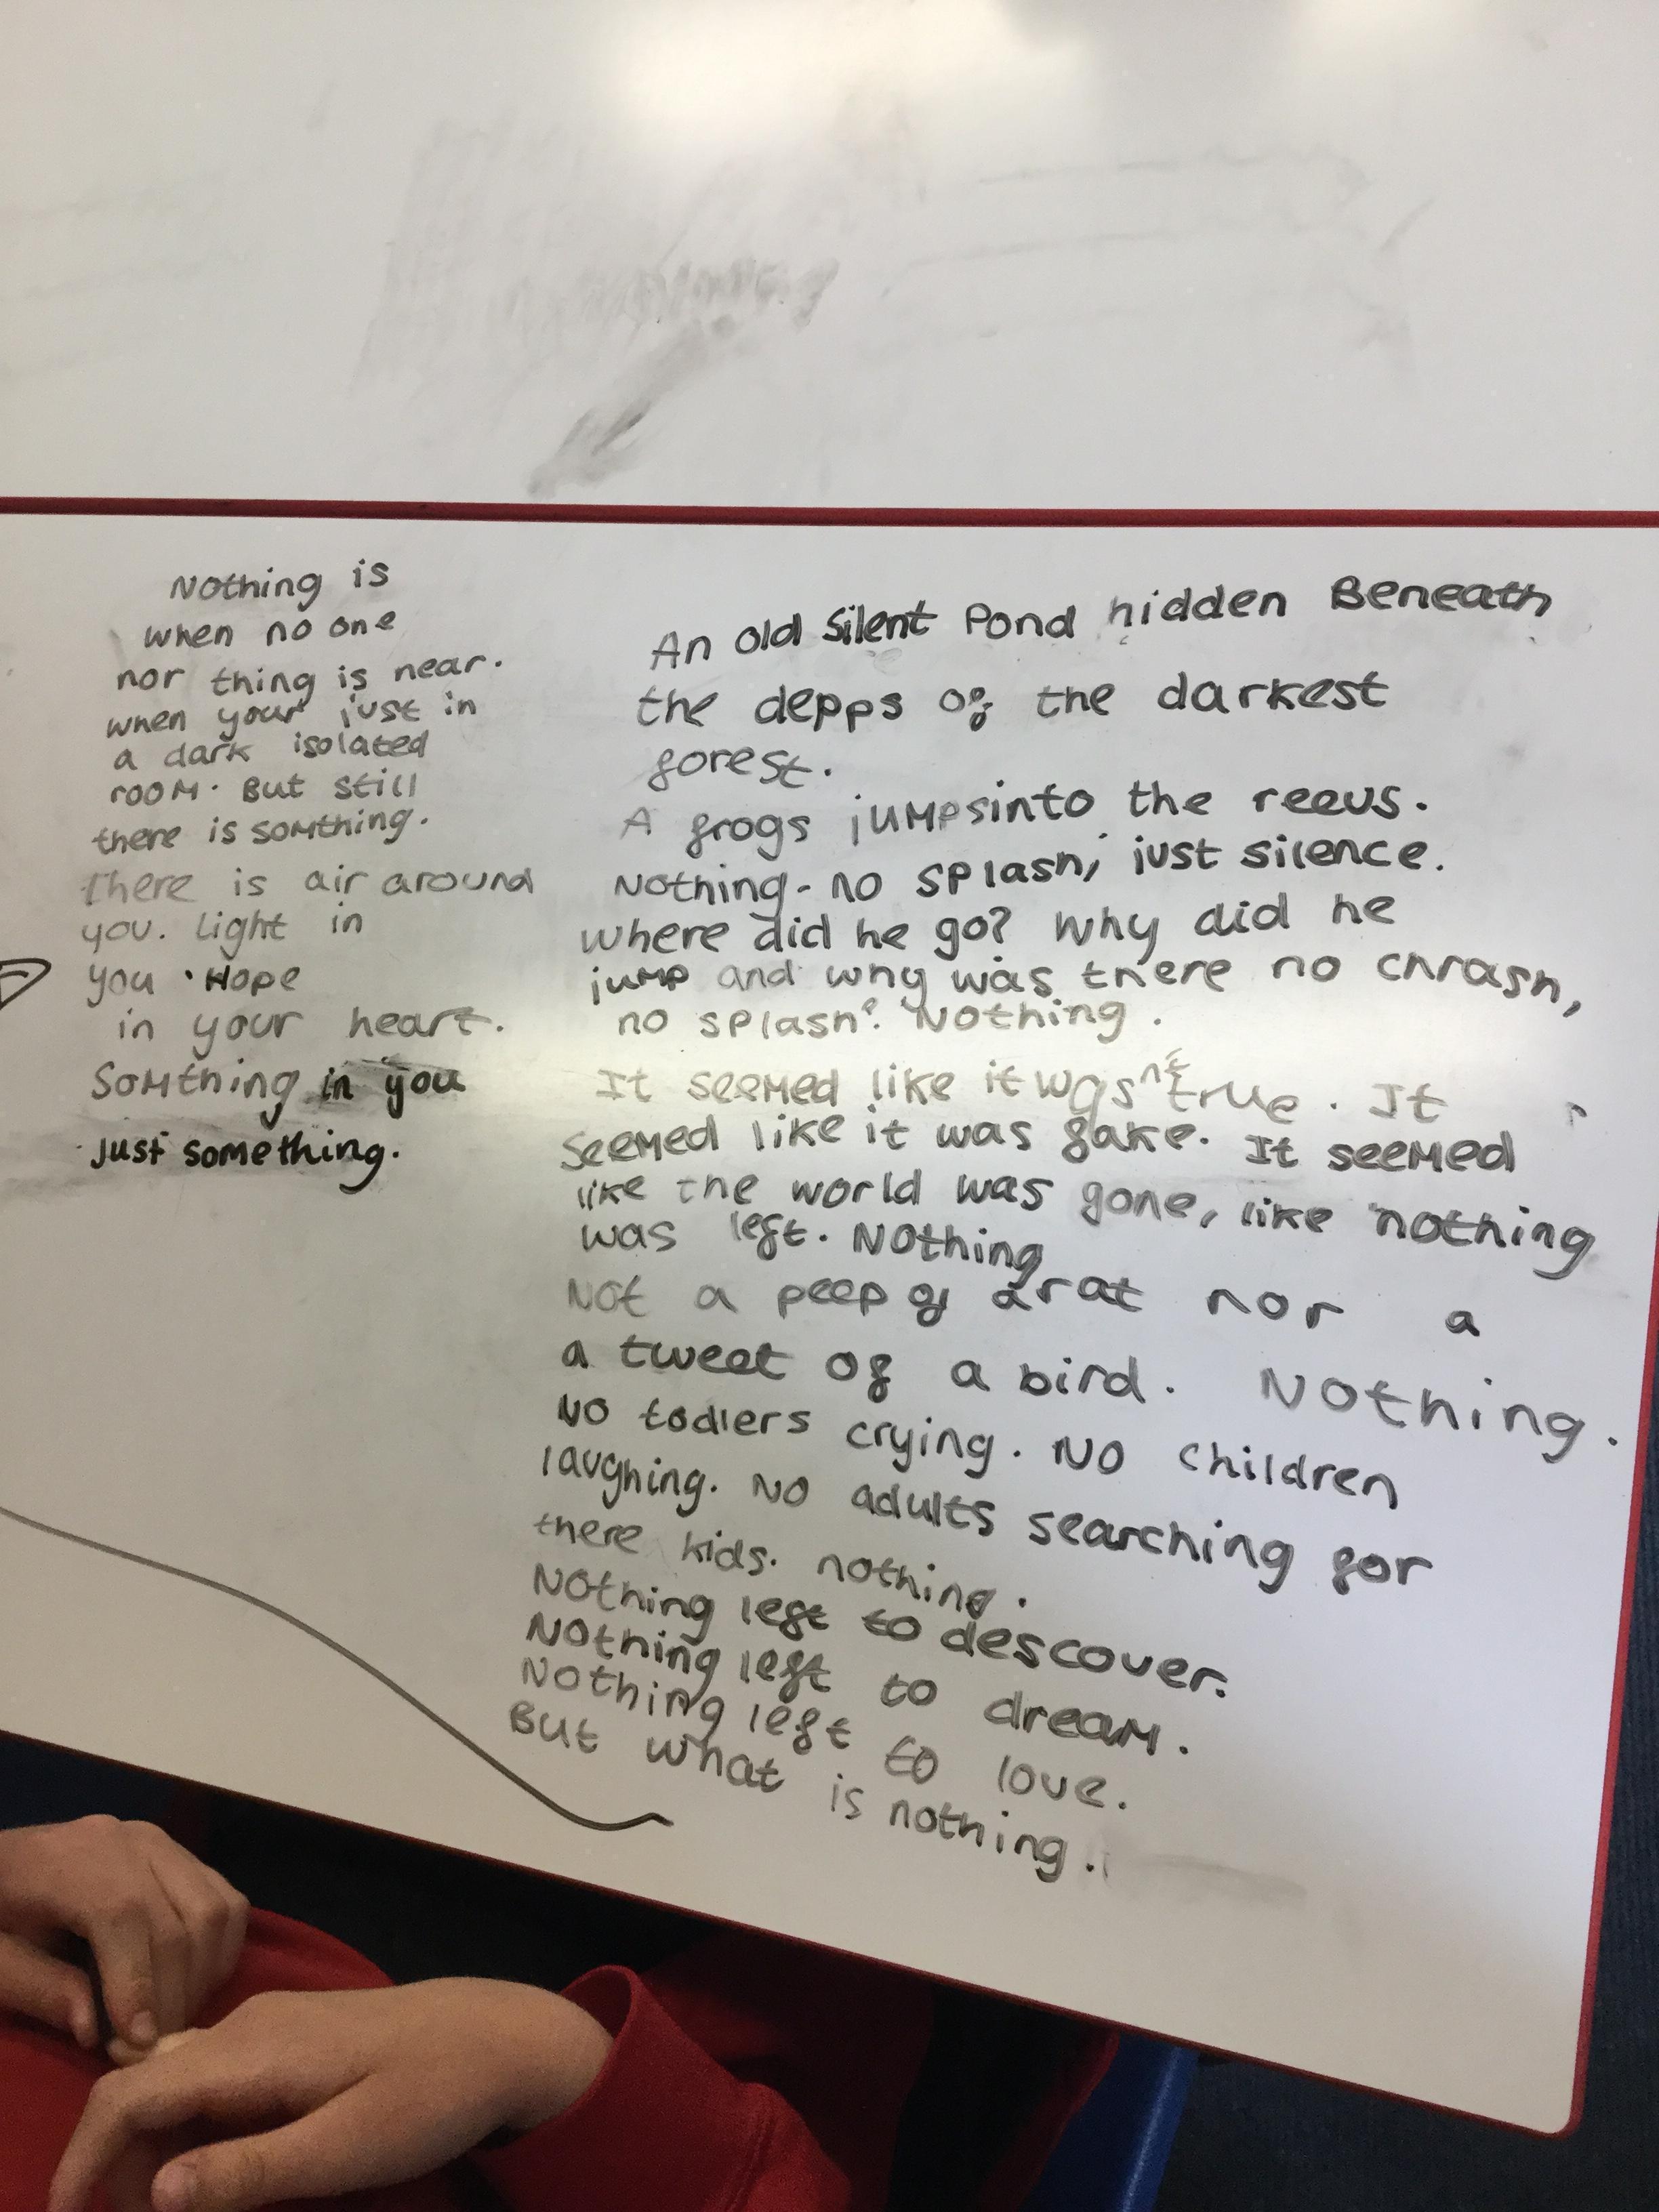 An old Silent Pond hidden Beneath
the depps of the darkest
forest.
A frogs jumpsinto the reeus.
Nothing - no splash, just silence.
Where did he go? Why did he
jump and why was there no chrash,
no splash? Nothing.
It seemed like it wasn't true. It
seemed like it was fake. It seemed
like the world was gone, like nothing
was left. Nothing
Not a peep of a rat nor a
a tweet of a bird. Nothing.
No todlers crying. No children
laughing. No adults searching for
there kids. nothing.
Nothing left to descover.
Nothing left to dream.
Nothing left to love.
But what is nothing.
Nothing is
when no one
nor thing is near.
when your just in
a dark isolated
room. But still
there is somthing.
there is air around
you. Light in
you. Hope
in your heart.
Somthing in you
just something.